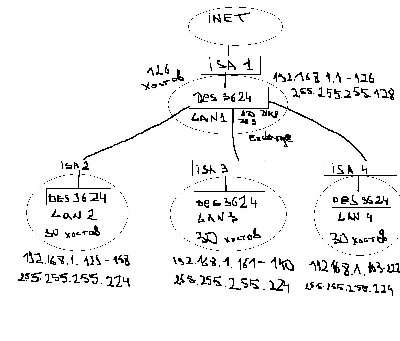 iNET
iSA 1
126
хостов
192.168.1.1 - 126
255.255.255.128
DES 3624
LAN1
Exchange
iSA 2
iSA 3
iSA 4
DES 3624
LAN 2
30 хостов
DES 3624
LAN3
30 хостов
DES 3624
LAN 4
30 хостов
192.168.1.129 - 158
255.255.255.224
192.168.1.161 - 190
255.255.255.224
192.168.1.193-222
255.255.255.224